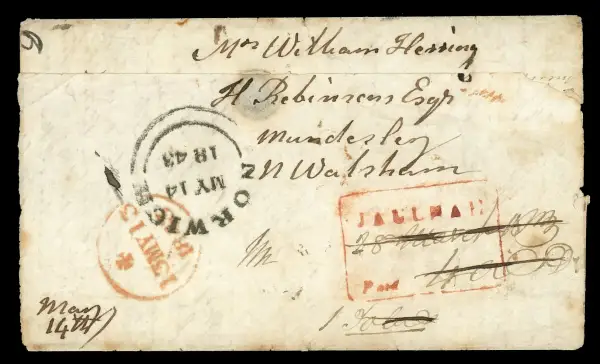 Mrs William Herring
H Robinsons Esqr
Mundesley
N Walsham
NORWICH
MY 14
1843
13 MY 13
JAULNAH
28 March
Paid
May
14th